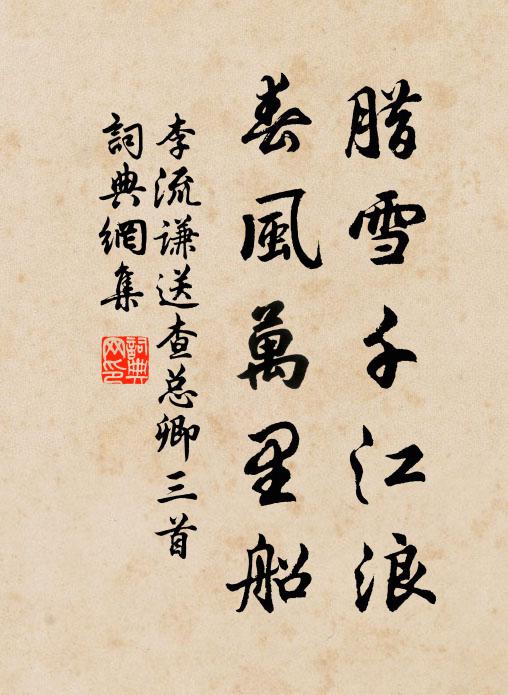 腊雪千江浪
春風萬里船
李流谦送查总卿三首
詞典網集
詞典網印